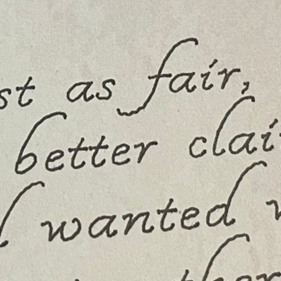 st as fair,
better clai
wanted